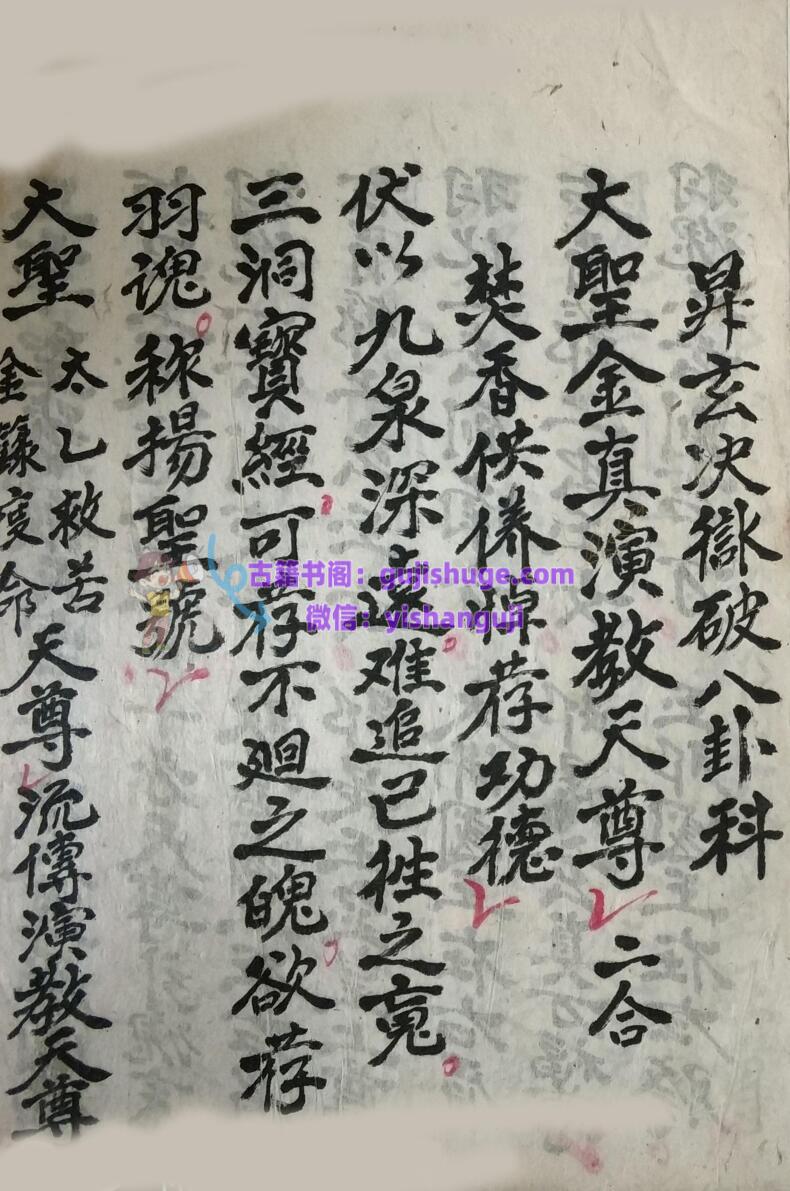 昇玄决獄破八卦科
大聖金真演教天尊 二合
焚香供养悼荐功德
伏以九泉深遠难追已徃之䰟
三洞寳經可荐不廻之魄欲荐
羽魂称揚聖號
大聖 太乙救苦 金籙度命 天尊 流傳演教天尊
古籍书阁：gujishuge.com
微信：yishanguji